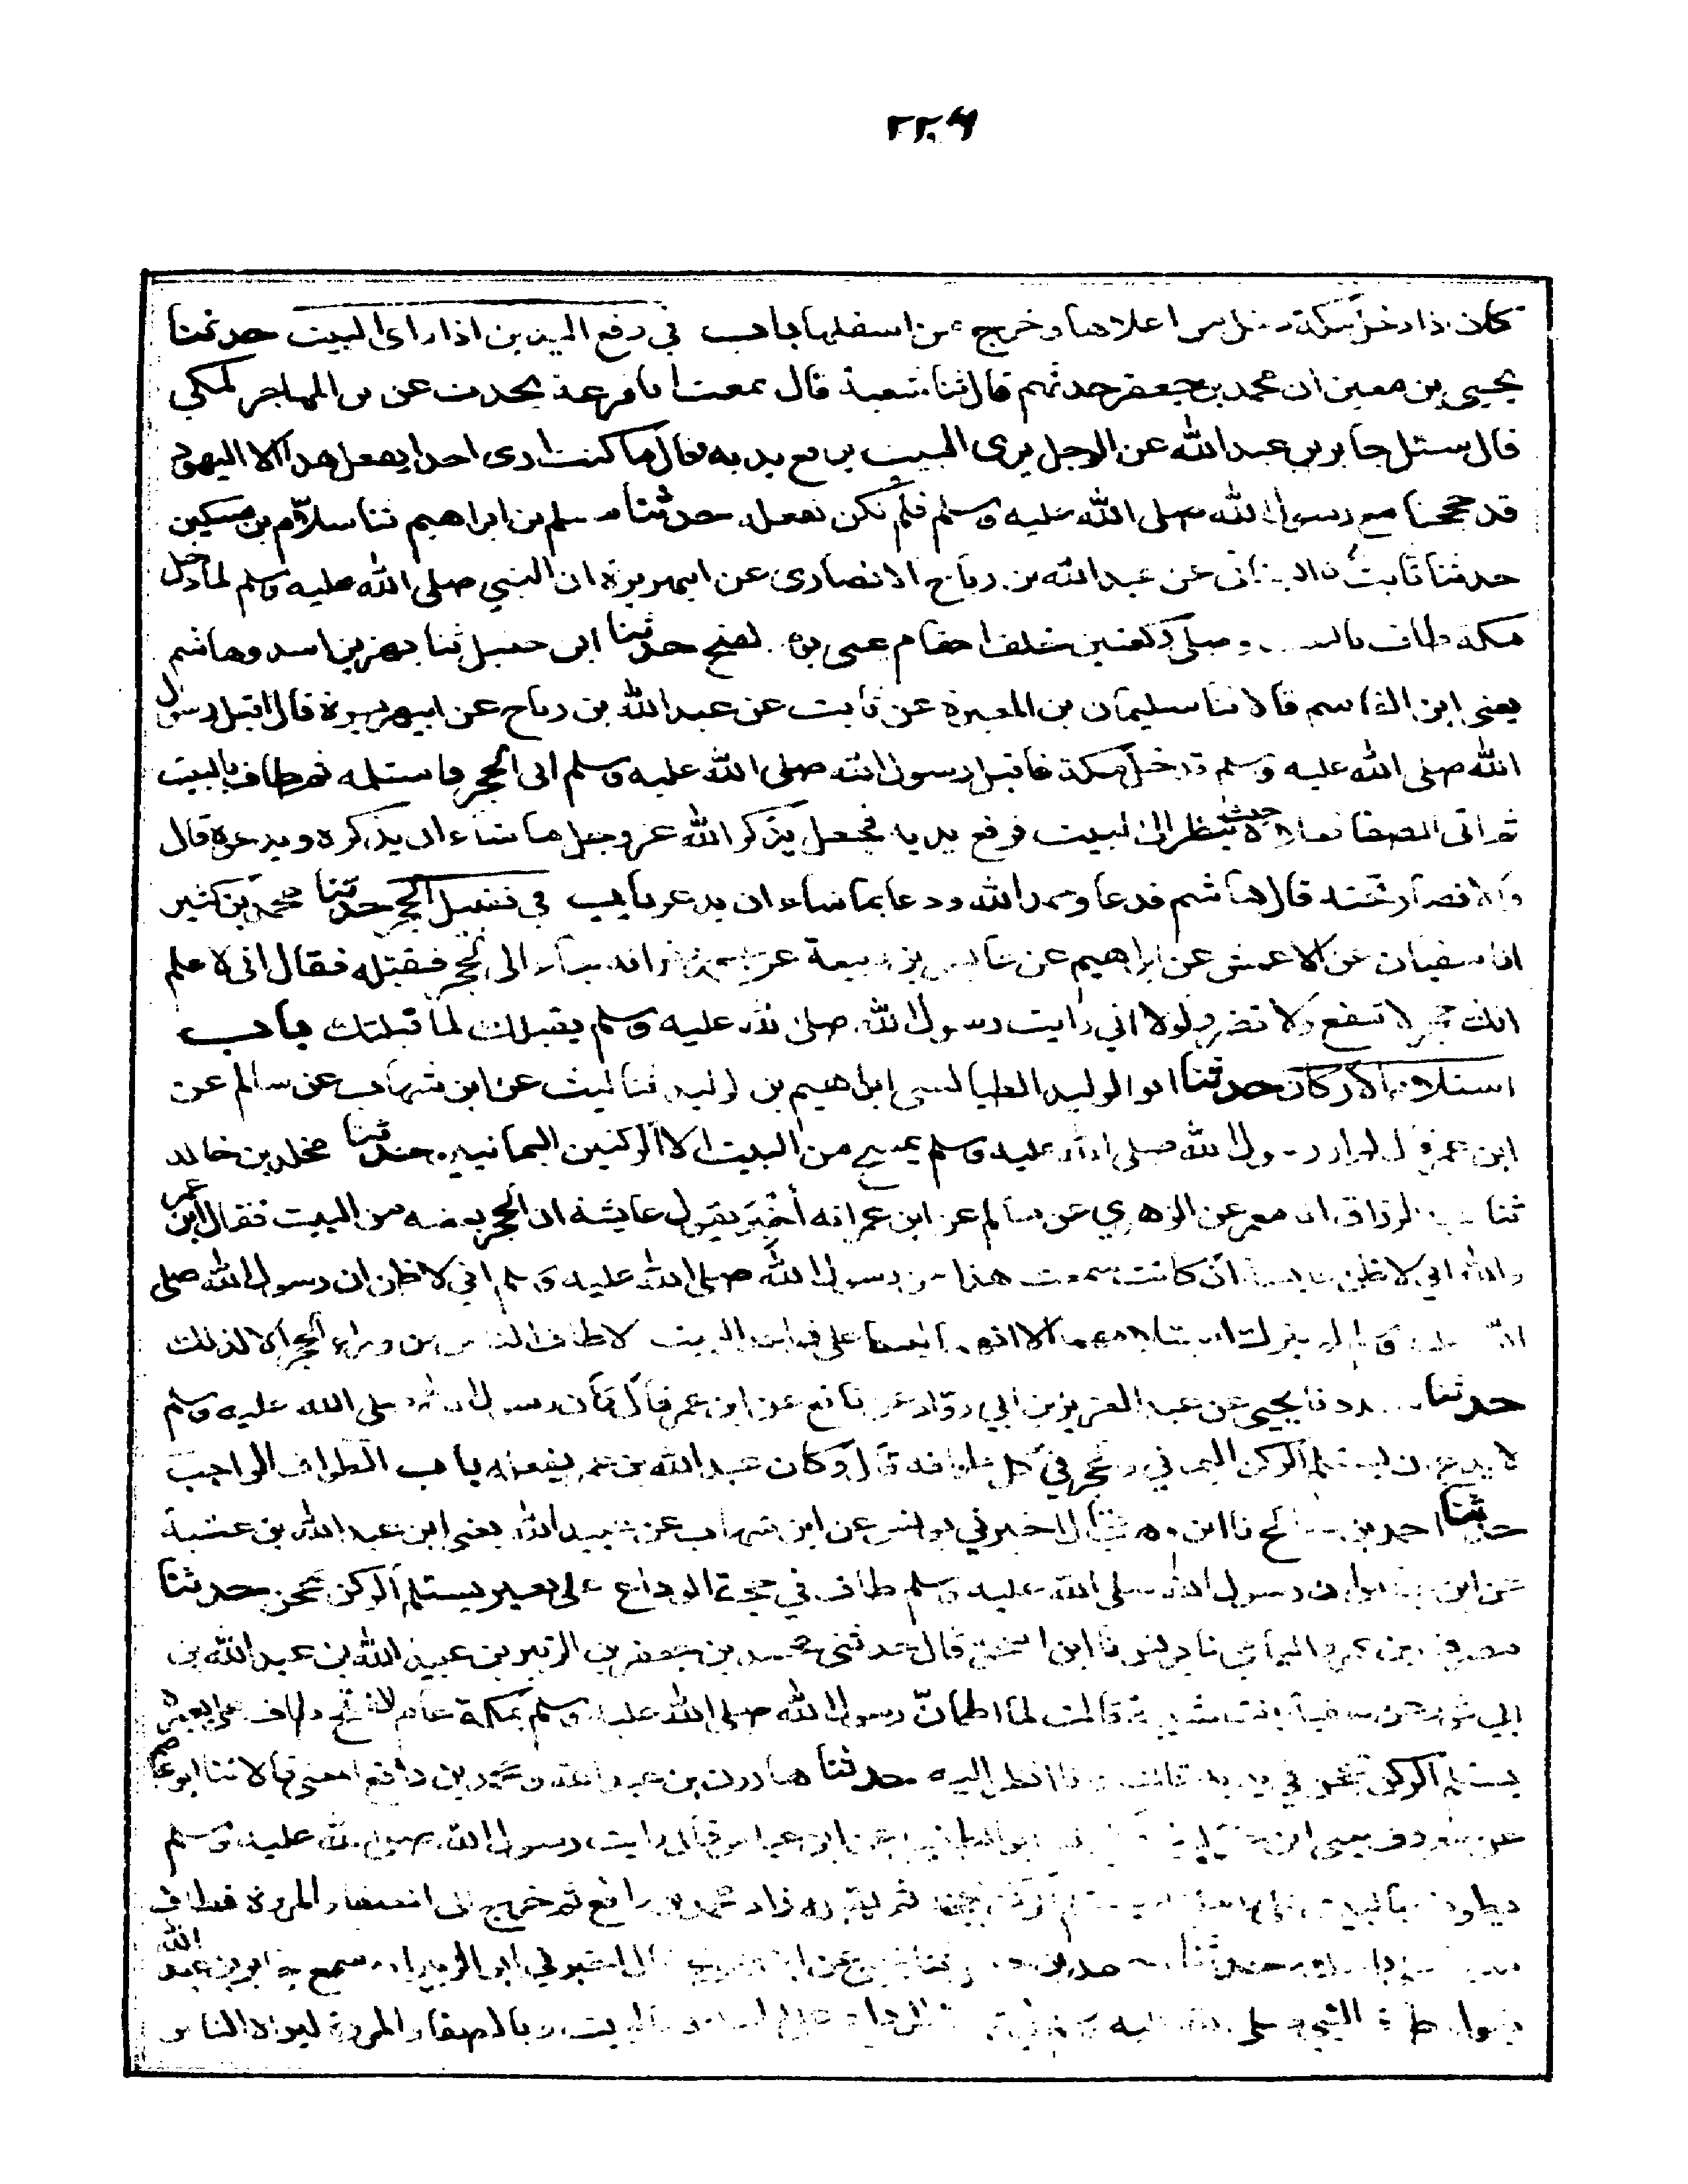 ٢٢٠٦
كان اذا دخل مكة دخل من اعلاها وخرج من اسفلها باب في رفع اليدين اذا راى البيت حدثنا
يحيى بن معين ان محمد بن جعفر حدثهم قال ثنا شعبة قال سمعت ابا قزعة يحدث عن المهاجر المكي
قال سئل جابر بن عبد الله عن الرجل يرى البيت يرفع يديه فقال ما كنت ارى احدا يفعل هذا الا اليهود
قد حججنا مع رسول الله صلى الله عليه وسلم فلم نكن نفعله حدثنا مسلم بن ابراهيم ثنا سلام بن مسكين
حدثنا ثابت البناني عن عبد الله بن رباح الانصارى عن ابيهريرة ان النبي صلى الله عليه وسلم لما دخل
مكة طاف بالبيت وصلى ركعتين خلف المقام يعنى يوم الفتح حدثنا ابن حنبل ثنا بهز بن اسد وهاشم
يعنى ابن القاسم قالا ثنا سليمان بن المغيرة عن ثابت عن عبد الله بن رباح عن ابيهريرة قال اقبل رسول
الله صلى الله عليه وسلم فدخل مكة فاقبل رسول الله صلى الله عليه وسلم الى الحجر فاستلمه ثم طاف بالبيت
ثم اتى الصفا فعلاه حيث ينظر الى البيت فرفع يديه فجعل يذكر الله عز وجل ما شاء ان يذكره ويدعوه قال
والانصار تحته قال هاشم فدعا وحمد الله ودعا بما شاء ان يدعو باب في تقبيل الحجر حدثنا محمد بن كثير
انا سفيان عن الاعمش عن ابراهيم عن عابس بن ربيعة عن عمر انه جاء الى الحجر فقبله فقال انى لاعلم
انك حجر لا تنفع ولا تضر ولولا اني رايت رسول الله صلى الله عليه وسلم يقبلك لما قبلتك باب
استلام الاركان حدثنا ابو الوليد الطيالسى ابراهيم بن الوليد ثنا ليث عن ابن شهاب عن سالم عن
ابن عمر قال لم ار رسول الله صلى الله عليه وسلم يمسح من البيت الا الركنين اليمانيين حدثنا مخلد بن خالد
ثنا عبد الرزاق انا معمر عن الزهري عن سالم عن ابن عمر انه أخبر بقول عايشة ان الحجر بعضه من البيت فقال ابن عمر
والله اني لاظن عايشة ان كانت سمعت هذا من رسول الله صلى الله عليه وسلم اني لاظن ان رسول الله صلى
الله عليه وسلم لم يترك استلامهما الا انهما ليسا على قواعد البيت ولا طاف الناس من وراء الحجر الا لذلك
حدثنا مسدد نا يحيى عن عبد العزيز بن ابي رواد عن نافع عن ابن عمر قال كان رسول الله صلى الله عليه وسلم
لا يدع ان يستلم الركن اليماني والحجر في كل طوافه قال وكان عبد الله بن عمر يفعله باب الطواف الواجب
حدثنا احمد بن صالح نا ابن وهب قال اخبرني يونس عن ابن شهاب عن عبيد الله يعنى ابن عبد الله بن عتبة
عن ابن عباس ان رسول الله صلى الله عليه وسلم طاف في حجة الوداع على بعير يستلم الركن بمحجن حدثنا
مصرف بن عمرو اليامي نا يونس نا ابن اسحق قال حدثنى محمد بن جعفر بن الزبير بن عبيد الله بن عبد الله بن
ابي ثور عن صفية بنت شيبة قالت لما اطمأنّ رسول الله صلى الله عليه وسلم بمكة عام الفتح طاف على بعيره
يستلم الركن بمحجن في يده قالت وانا انظر اليه حدثنا هارون بن عبد الله ومحمد بن رافع المعنى قالا ثنا ابو عاصم
عن معروف يعنى ابن خربوذ ابو الطفيل عن ابن عباس قال رايت رسول الله صلى الله عليه وسلم
يطوف بالبيت على راحلته يستلم الركن بمحجنه ثم يقبله زاد محمد بن رافع ثم خرج الى الصفا والمروة فطاف
حدثنا احمد بن يحيى عن ابن جريج قال اخبرني ابو الزبير انه سمع جابر بن عبد الله
يقول طاف النبي صلى الله عليه وسلم على راحلته بالبيت وبالصفا والمروة ليراه الناس